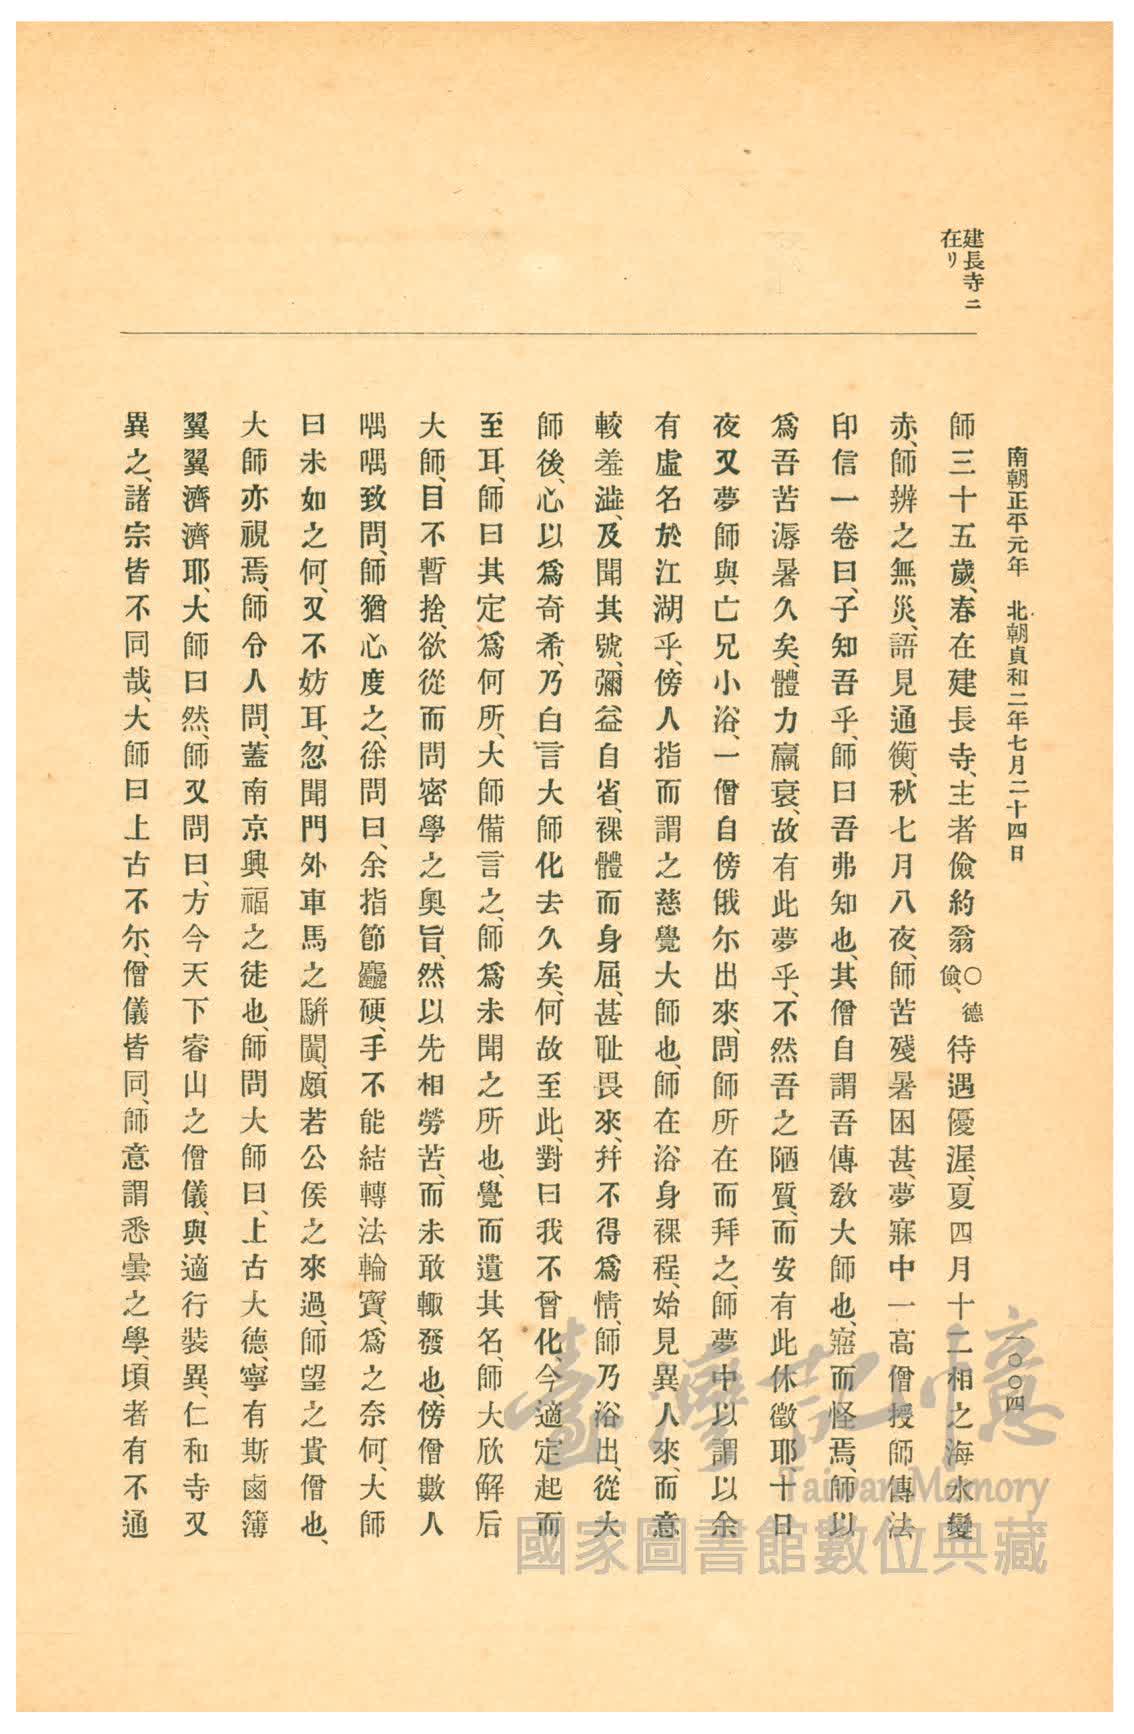 南朝正平元年　北朝貞和二年七月二十四日
一〇〇四
建長寺ニ
在リ
師三十五歲、春在建長寺、主者儉約翁〇德儉、待遇優渥、夏四月十二相之海水變
赤、師辨之無災、語見通衡、秋七月八夜、師苦殘暑困甚、夢寐中一高僧授師傳法
印信一卷曰、子知吾乎、師曰吾弗知也、其僧自謂吾傳敎大師也、寤而怪焉、師以
爲吾苦溽暑久矣、體力羸衰、故有此夢乎、不然吾之陋質、而安有此休徵耶、十日
夜又夢師與亡兄小浴、一僧自傍俄尓出來、問師所在而拜之、師夢中以謂以余
有虛名於江湖乎、傍人指而謂之慈覺大師也、師在浴身裸程、始見異人來、而意
較羞澁、及聞其號、彌益自省、裸體而身屈、甚耻畏來、幷不得爲情、師乃浴出、從大
師後、心以爲奇希、乃白言大師化去久矣、何故至此、對曰我不曾化、今適定起而
至耳、師曰其定爲何所、大師備言之、師爲未聞之所也、覺而遺其名、師大欣解后
大師、目不暫捨、欲從而問密學之奧旨、然以先相勞苦、而未敢輙發也、傍僧數人
喁喁致問、師猶心度之、徐問曰、余指節麤硬、手不能結轉法輪寶、爲之奈何、大師
曰未如之何、又不妨耳、忽聞門外車馬之駢闐、頗若公侯之來過、師望之貴僧也、
大師亦視焉、師令人問、蓋南京興福之徒也、師問大師曰、上古大德、寧有斯鹵簿
翼翼濟濟耶、大師曰然、師又問曰、方今天下睿山之僧儀、與適行裝異、仁和寺又
異之、諸宗皆不同哉、大師曰上古不尓、僧儀皆同、師意謂悉曇之學、頃者有不通
臺灣記憶
Taiwan Memory
國家圖書館數位典藏